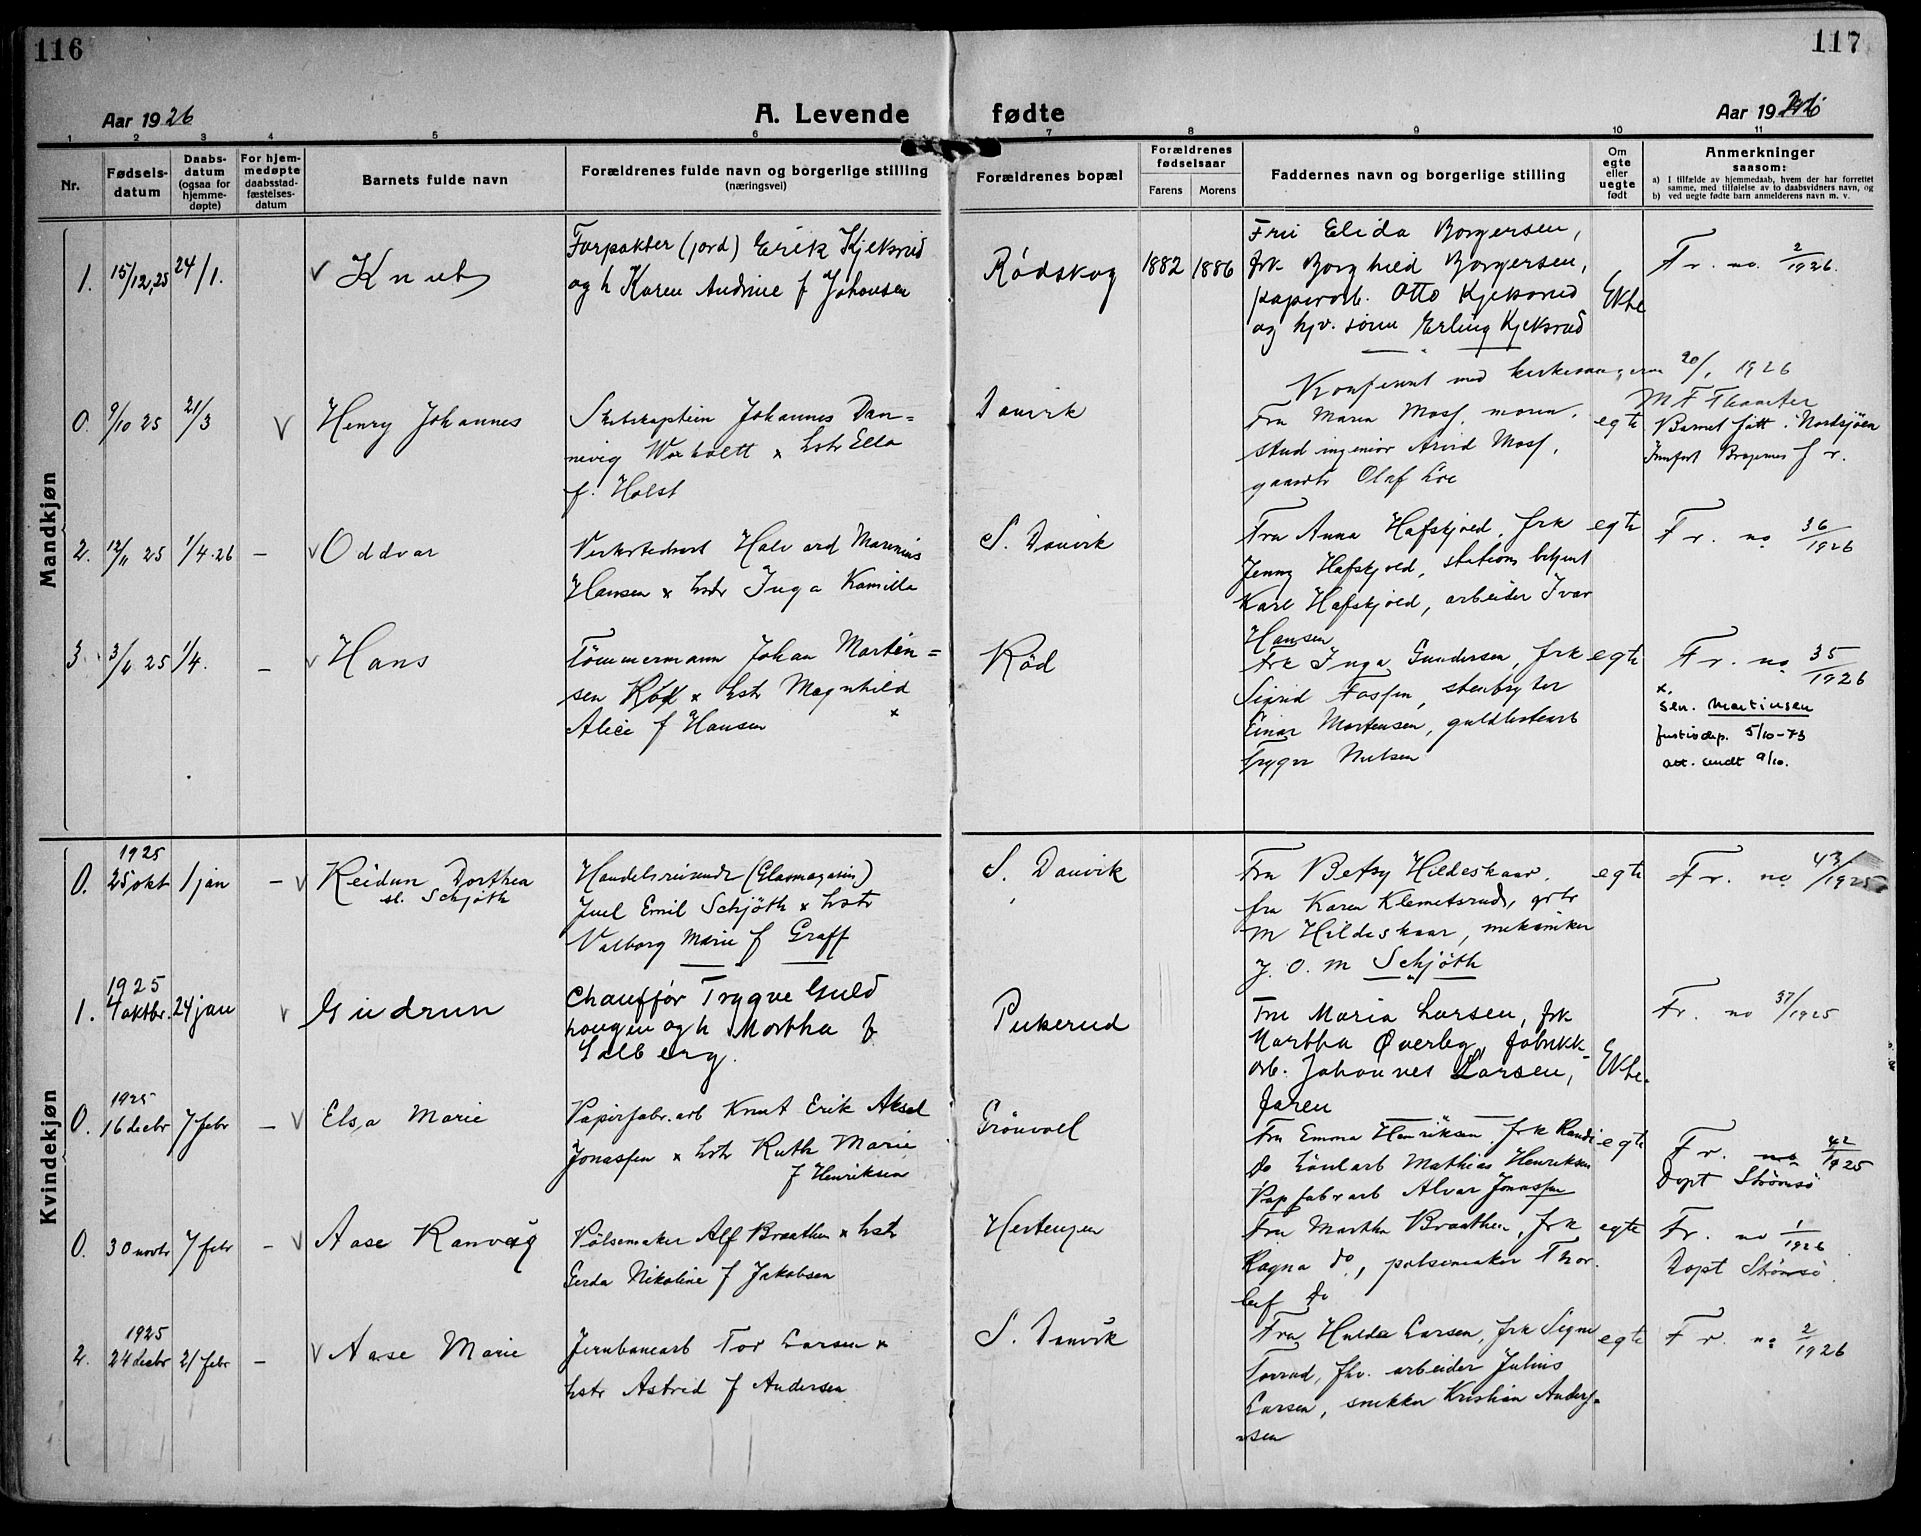 116
117
Aar 1926
A. Levende fødte
Aar 1926
1 2 3 4 5 6 7 8 9 10 11
Nr.
Fødsels-
datum
Daabs-
datum
(ogsaa for
hjemme-
døpte)
For hjem-
medøpte
daabsstad-
fæstelses-
datum
Barnets fulde navn
Forældrenes fulde navn og borgerlige stilling
(næringsvei)
Forældrenes bopæl
Forældrenes
fødselsaar
Farens
Morens
Faddernes navn og borgerlige stilling
Om
egte
eller
uegte
født
Anmerkninger
saasom:
a) I tilfælde av hjemmedaab, hvem der har forrettet
samme, med tilføielse av to daabsvidners navn, og
b) ved uegte fødte barn anmelderens navn m. v.
Mandkjøn
1. 15/12,25 24/1. v Knut
Forpakter (jord) Erik Kjeksrud
og h Karen Andrine f Johansen
Rødskog 1882 1886
Fru Elida Borgersen,
frk. Borghild Borgersen,
papirarb. Otto Kjeksrud
og hjv. sønn Erling Kjeksrud
Ekte
Fr. no. 2/1926.
Konferert med kirkesangeren 20/1 1926
0. 9/10 25 21/3 v Henry Johannes
Skibskaptein Johannes Dan=
nevig x hstr Ella
f. Holst
Danvik
Fru Maren Moss, moren,
stud ingeniør Arvid Moss,
gaardbr Olaf Loe
egte
Barnet født i Nordsjøen
Innført Bragernes f r.
2. 12/11 25 1/4.26 – v Oddvar
Verkstedarb Halvard Marinius
Hansen x hstr Inga Kamilla
S. Danvik
Fru Anna Hafskjold, frk
Jenny Hafskjold, stations betjent
Karl Hafskjold, arbeider Ivar
Hansen
egte
Fr. no 36/1926
3. 25 1/4. – v Hans
Tømmermann Johan Marten=
sen Rød x hstr Magnhild x
Alice f Hansen
Rød
Frk Inga Gundersen, frk
Sigrid Fossen, stenbryter
Einar Martensen, guldlistearb
Trygve Nielsen
egte
Fr. no 35/1926
x.
sen. Martinsen
Justisdep. 5/10-73
att. sendt 9/10.
Kvindekjøn
0. 1925
25 okt 1 jan – v Reidun Dorthea
sl. Schjøth
Handelsreisende (Glasmagasin)
Juel Emil Schjøth x hstr
Valborg Marie f Graff
S. Danvik
Fru Betsy Hildeskaar,
fru Karen Klemetsrud, grbr
M Hildeskaar, mekaniker
J. O. M Schjøth
egte
Fr. no 43/1925
1. 1925
4 oktbr. 24 jan v Gudrun
Chauffør Trygve Guld
haugen og h Martha f
Solberg.
Pukerud
Fru Maria Larsen, frk
Martha Øverby, fabrikk-
arb. Johannes Larsen,
faren
Ekte.
Fr. no 37/1925
0. 1925
16 decbr 7 febr – v Elsa Marie
Papirfabr.arb Knut Erik Aksel
Jonassen x hstr Ruth Marie
f Henriksen
Grønvoll
Fru Emma Henriksen, frk Randi
do Mathias Henriksen
Papfabrarb Alvar Jonassen
egte
Fr. no 42/1925
Døpt Strømsø
0. 30 novbr 7 febr – v Aase Ranveig
Pølsemaker Alf Braathen x hstr
Gerda Nikoline f Jakobsen
Hertengen
Fru Martha Braathen, frk
Ragna do, pølsemaker Thor
leif do
egte
Fr. no 1/1926
Døpt Strømsø.
2. 1925
24 decbr 21 febr – v Aase Marie
Jernbanearb Tor Larsen x
hstr Astrid f Andersen
S. Danvik
Fru Hulda Larsen, frk Signe
Torrud, fhv. arbeider Julius
Larsen, snekker Kristian Anders-
sen
egte
Fr. no 2/1926